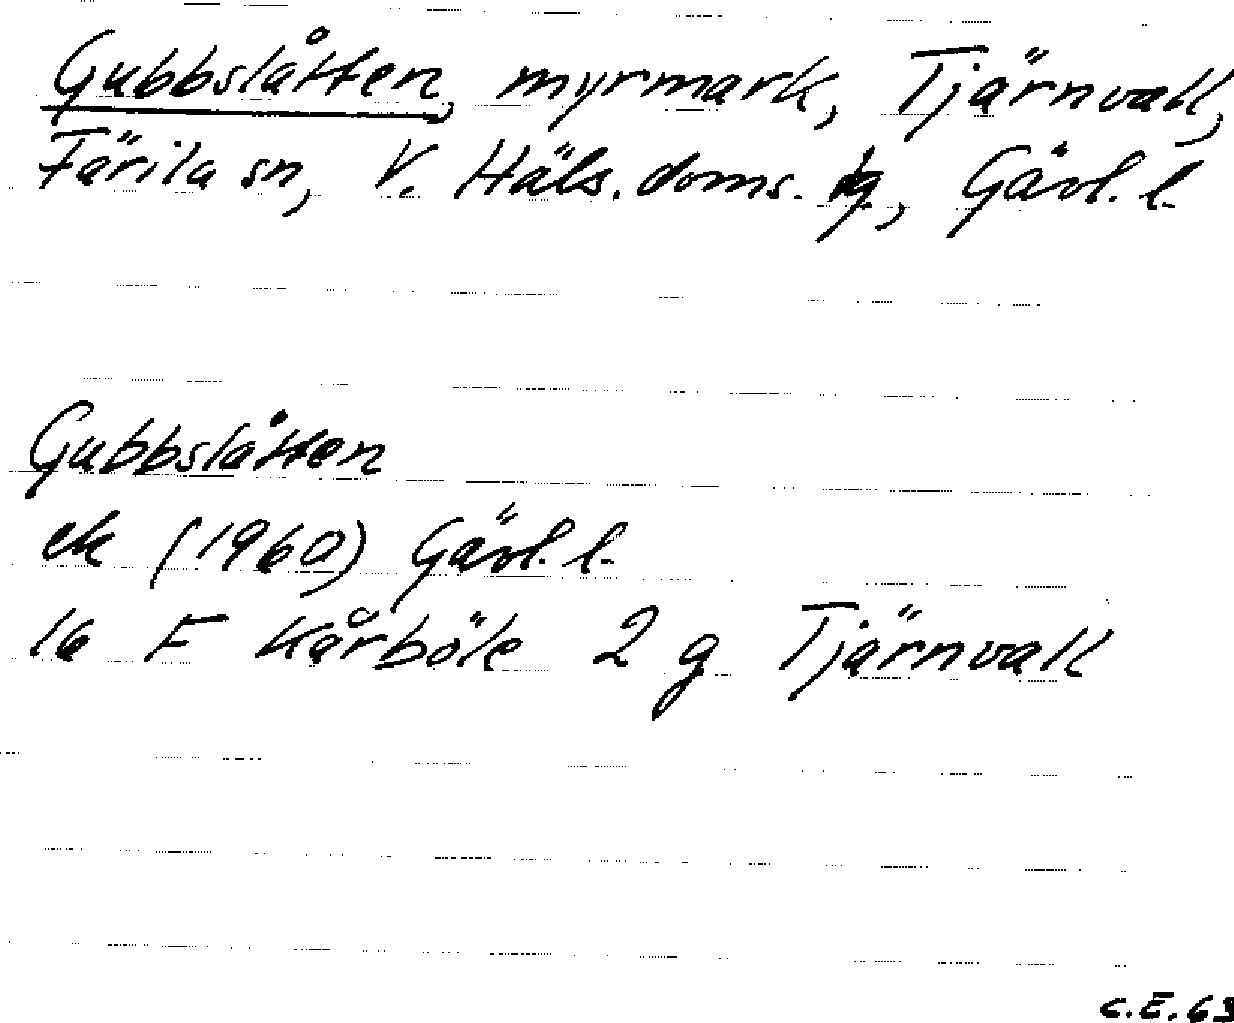 Gubbslåtten, myrmark, Tjärnvall,
Färila sn, V. Häls. doms. hg, Gävl. l.
Gubbslåtten
ek (1960) Gävl. l.
16 F Kårböle 2 g Tjärnvall
C.E. 63